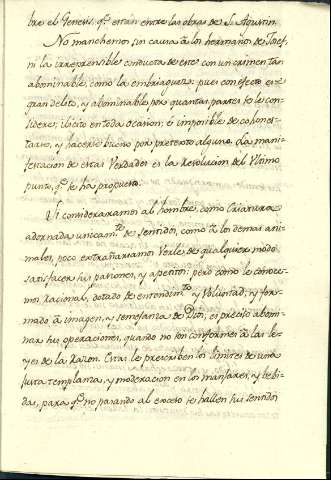 bre el Genesis, q.e estàn entre las obras de S.n Agustin.
No manchemos sin causa à los hermanos de Josef,
ni la irreprensible conducta de este con un crimen tan
abominable, como la embriaguez: pues con efecto es
gran delito, y abominable por quantas partes se le con-
sidere; ilicito en toda ocasion; è imposible de cohones-
tarlo, y hacerse bueno por pretexto alguno. La mani-
festacion de estas Verdades es la Resolucion del Ultimo
punto, q.e se ha propuesto.
Si consideraramos al hombre, como Criatura
adornada unicam.te de sentidos, como à los demas ani-
males, poco extrañariamos Verle de qualquier modo
satisfacer sus pasiones, y apetitos: pero como le conoce-
mos Racional, dotado de entendim.to y Voluntad; y for-
mado à imagen, y semejanza de Dios, es preciso abomi-
nar sus operaciones, quando no son conformes à las le-
yes de la Razon. Estas le prescriben los limites de una
justa templanza, y moderacion en los manjares, y bebi-
das, para q.e no pasando al exceso se hallen sus sentidos